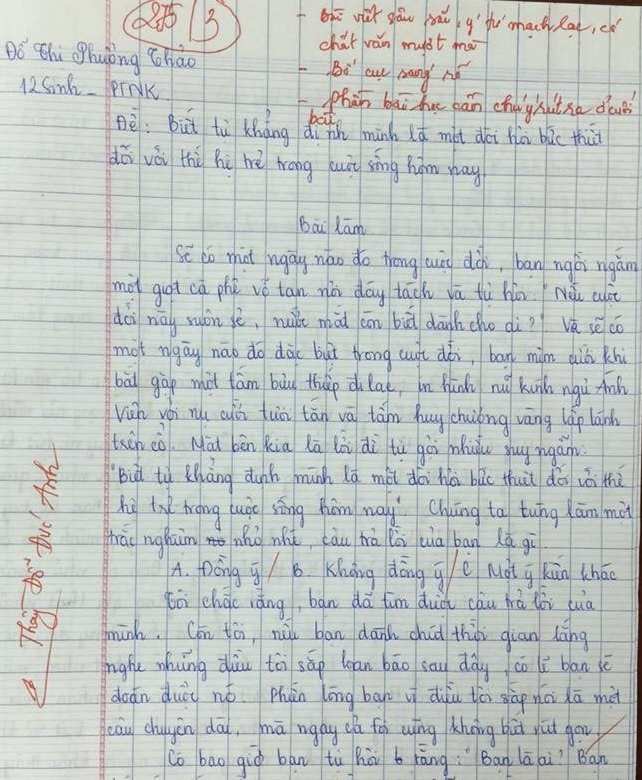 2,75 / 3
- Bài viết sâu sắc, ý tứ mạch lạc, có
chất văn mượt mà
- Bố cục sáng rõ
- Phần bài học cần chú ý rút ra ở cuối
bài
Đỗ Thị Phương Thảo
12 Sinh - PTNK
Đề: Biết tự khẳng định mình là một đòi hỏi bức thiết
đối với thế hệ trẻ trong cuộc sống hôm nay
Bài làm
Sẽ có một ngày nào đó trong cuộc đời, bạn ngồi ngắm
một giọt cà phê vỡ tan nơi đáy tách và tự hỏi: "Nếu cuộc
đời này suôn sẻ, nước mắt còn biết dành cho ai?" Và sẽ có
một ngày nào đó đặc biệt trong cuộc đời, bạn mỉm cười khi
bắt gặp một tấm bưu thiếp đi lạc, in hình nữ kình ngư Ánh
Viên với nụ cười tươi tắn và tấm huy chương vàng lấp lánh
trên cổ. Mặt bên kia là lời đề tự gợi nhiều suy ngẫm:
"Biết tự khẳng định mình là một đòi hỏi bức thiết đối với thế
hệ trẻ trong cuộc sống hôm nay". Chúng ta từng làm một
trắc nghiệm nho nhỏ, câu trả lời của bạn là gì
A. Đồng ý / B. Không đồng ý / C. Một ý kiến khác
Tôi chắc rằng, bạn đã tìm được câu trả lời của
mình. Còn tôi, nếu bạn dành chút thời gian lắng
nghe những điều tôi sắp loan báo sau đây, có lẽ bạn sẽ
đoán được nó. Phiền lòng bạn vì điều tôi sắp nói là một
câu chuyện dài, mà ngay cả tôi cũng không biết rút gọn
Có bao giờ bạn tự hỏi rằng: "Bạn là ai? Bạn
Thầy Đỗ Đức Anh